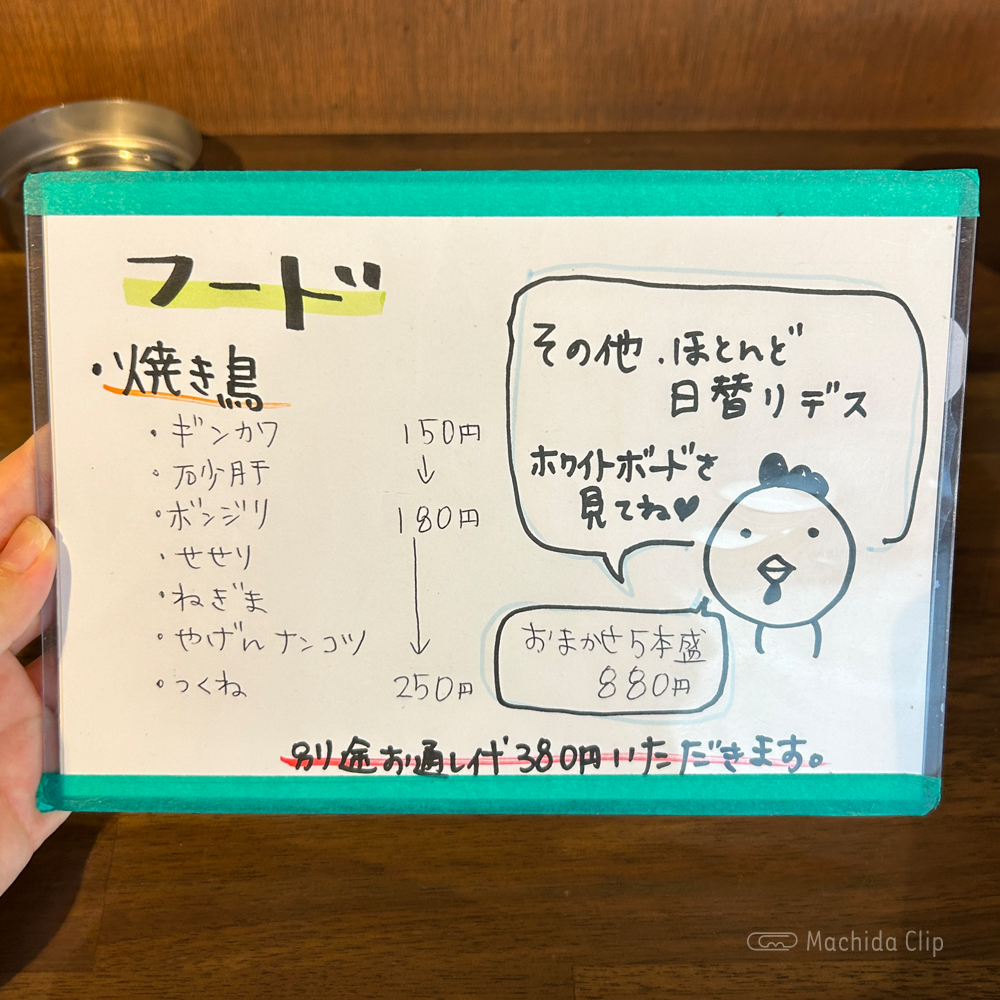 フード
・焼き鳥
・ギンカワ 150円
・砂肝 ↓
・ボンジリ 180円
・せせり
・ねぎま
・やげんナンコツ ↓
・つくね 250円
その他、ほとんど
日替りデス
ホワイトボードを
見てね♥
おまかせ5本盛
880円
別途お通し代380円いただきます。
Machida Clip